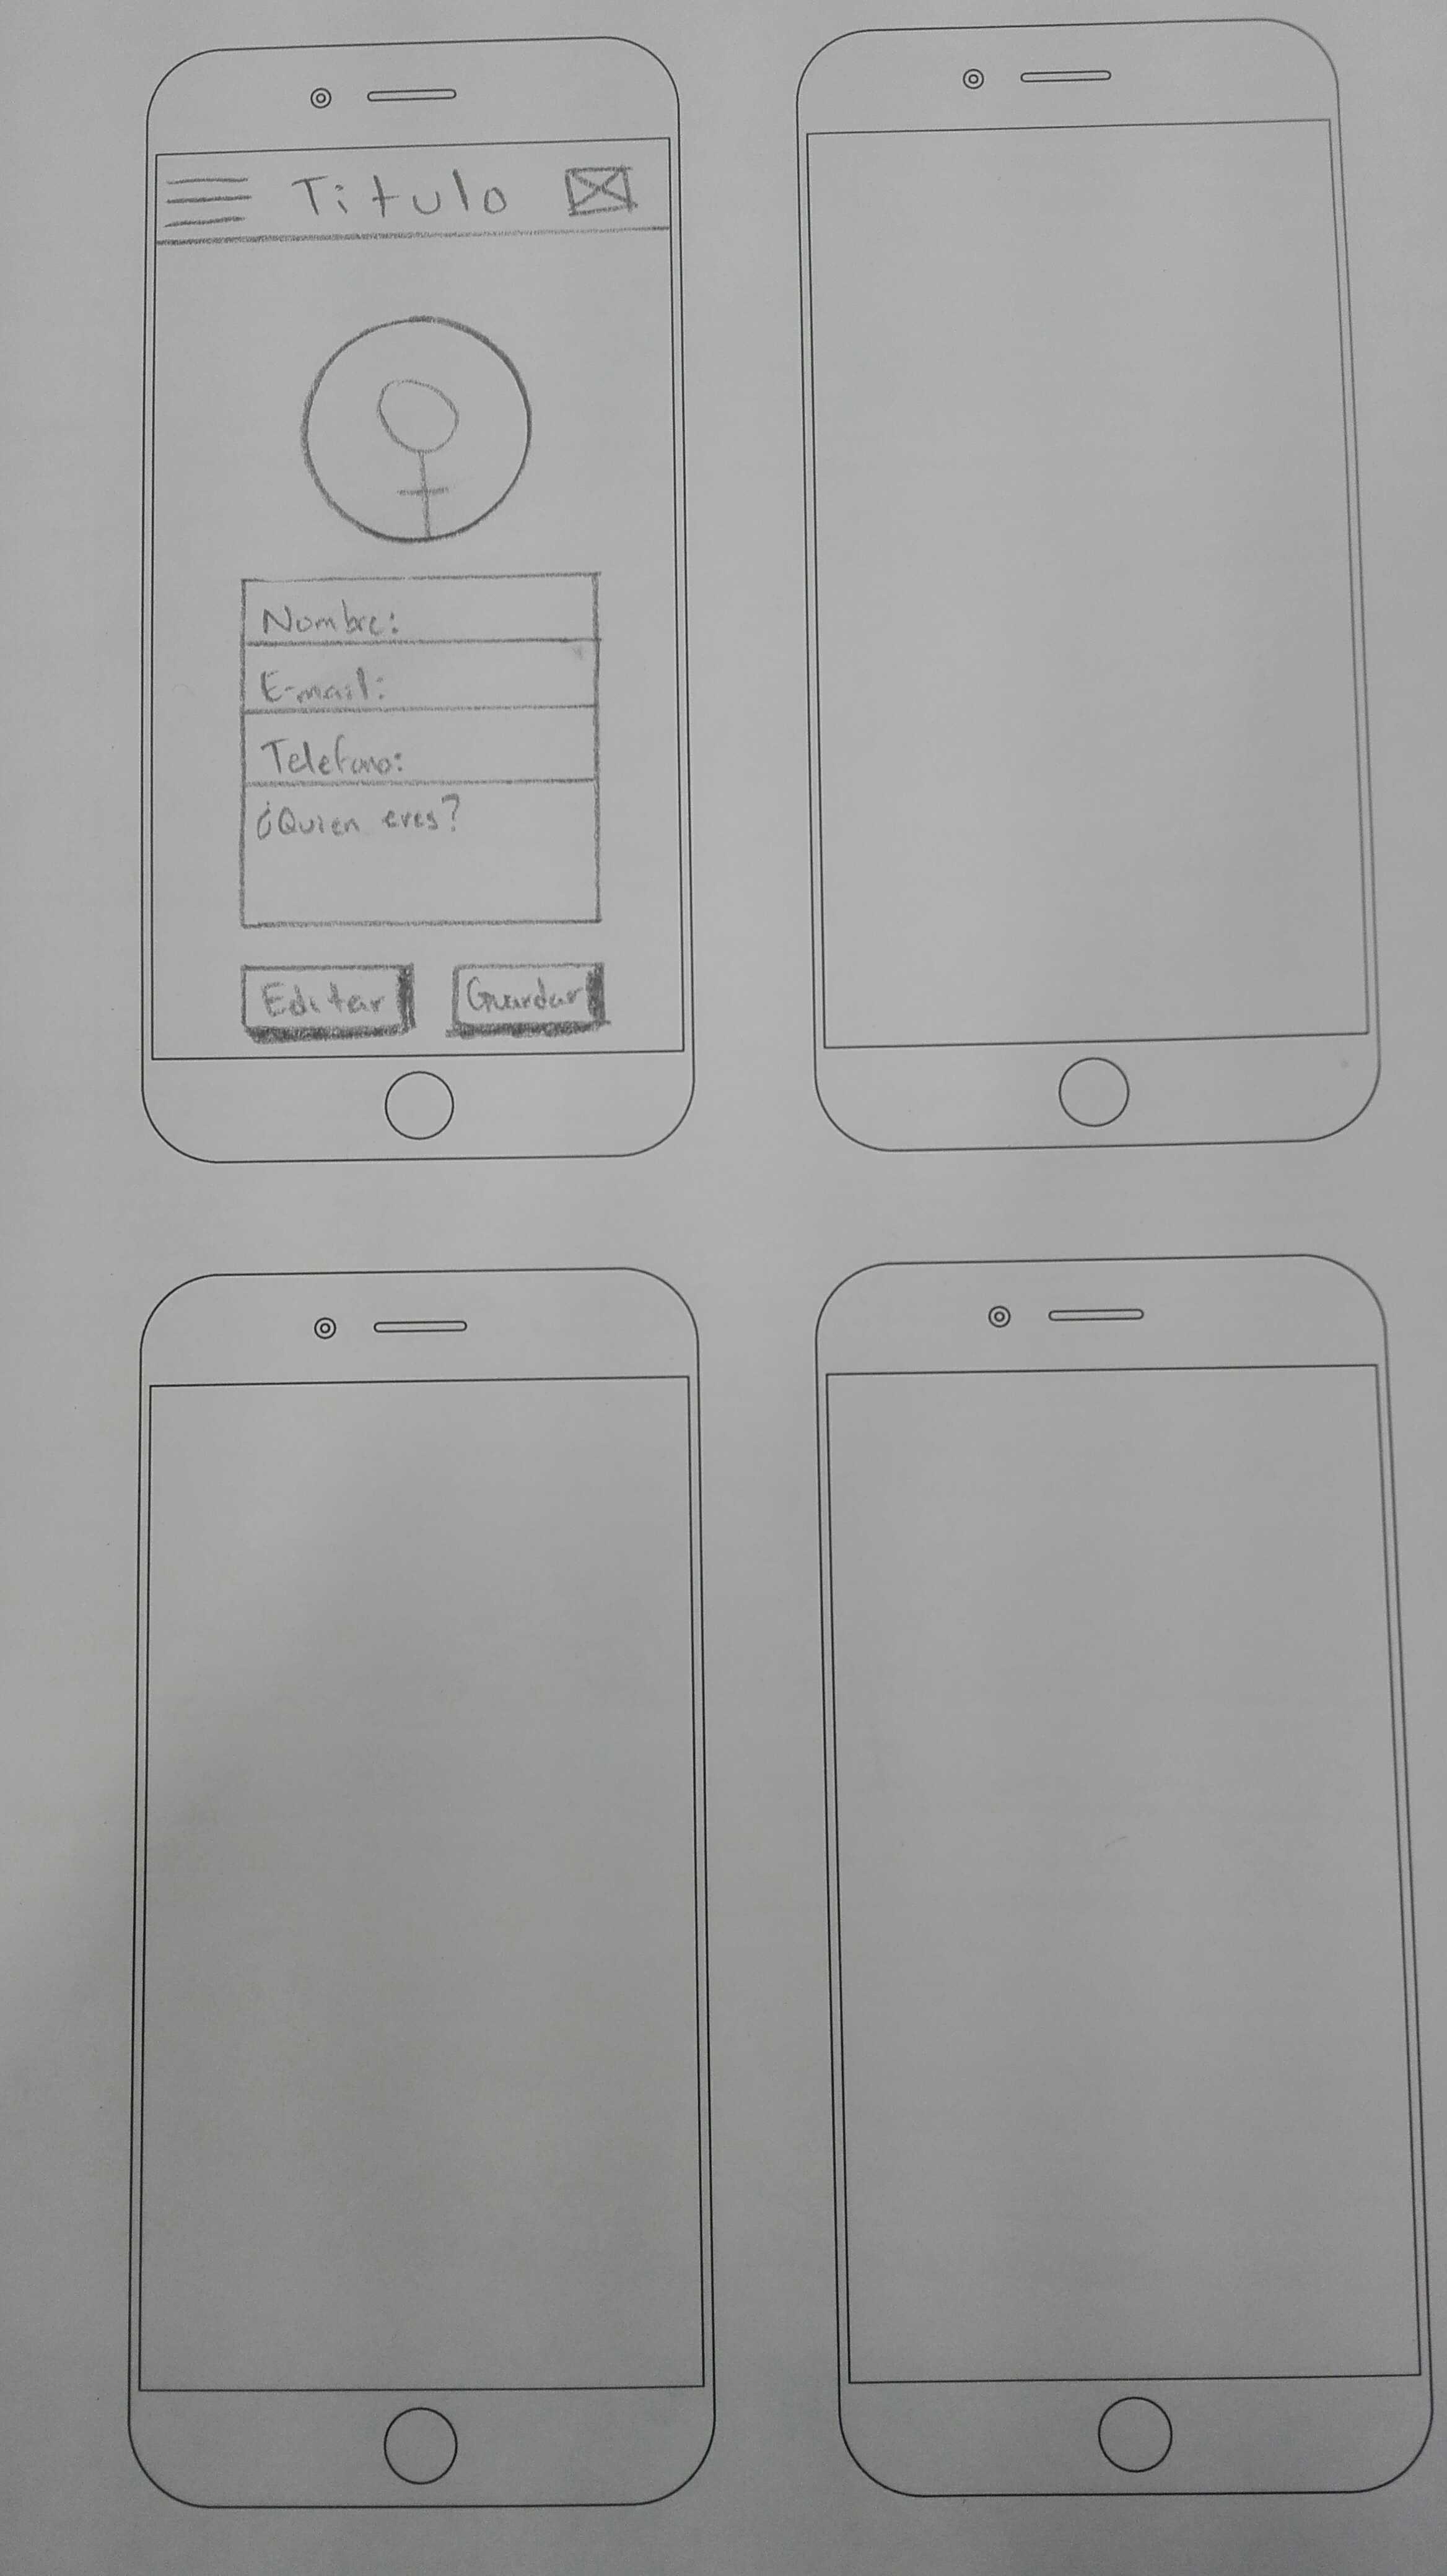 Titulo
Nombre:
E-mail:
Telefono:
¿Quien eres?
Editar
Guardar